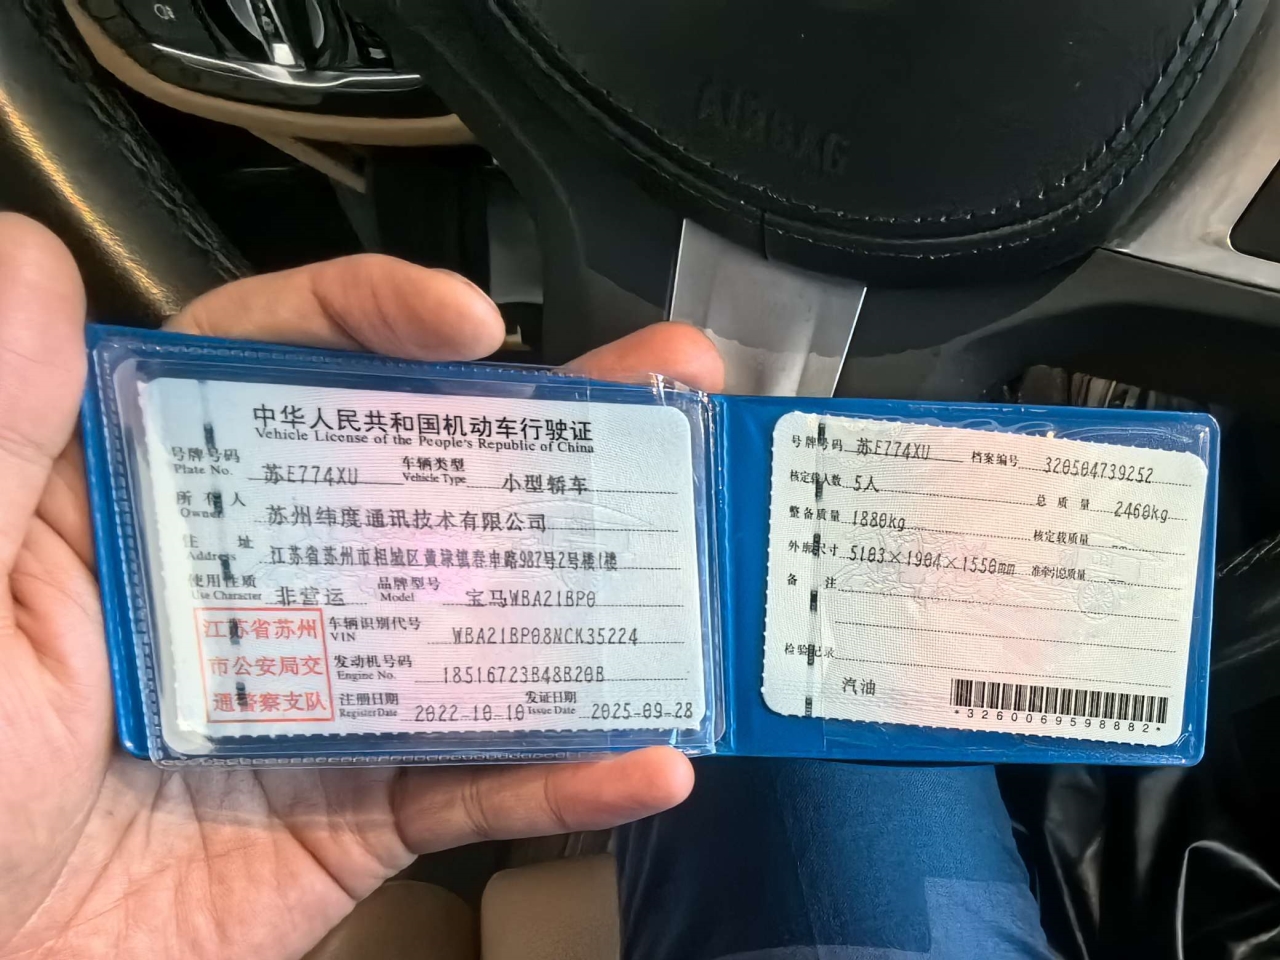 AIRBAG
中华人民共和国机动车行驶证
Vehicle License of the People's Republic of China
号牌号码 苏E774XU 车辆类型 小型轿车
Plate No. Vehicle Type
所有人 苏州纬度通讯技术有限公司
Owner
住址 江苏省苏州市相城区黄埭镇春申路987号2号楼1楼
Address
使用性质 非营运 品牌型号 宝马WBA21BP0
Use Character Model
江苏省苏州
市公安局交
通警察支队
车辆识别代号 WBA21BP08NCK35224
VIN
发动机号码 18516723B48B20B
Engine No.
注册日期 2022-10-10 发证日期 2025-09-28
Register Date Issue Date
号牌号码 苏E774XU 档案编号 320504739252
核定载人数 5人 总质量 2460kg
整备质量 1880kg 核定载质量 --
外廓尺寸 5103×1904×1550mm 准牵引总质量 --
备注
检验记录
汽油
*3260069598882*